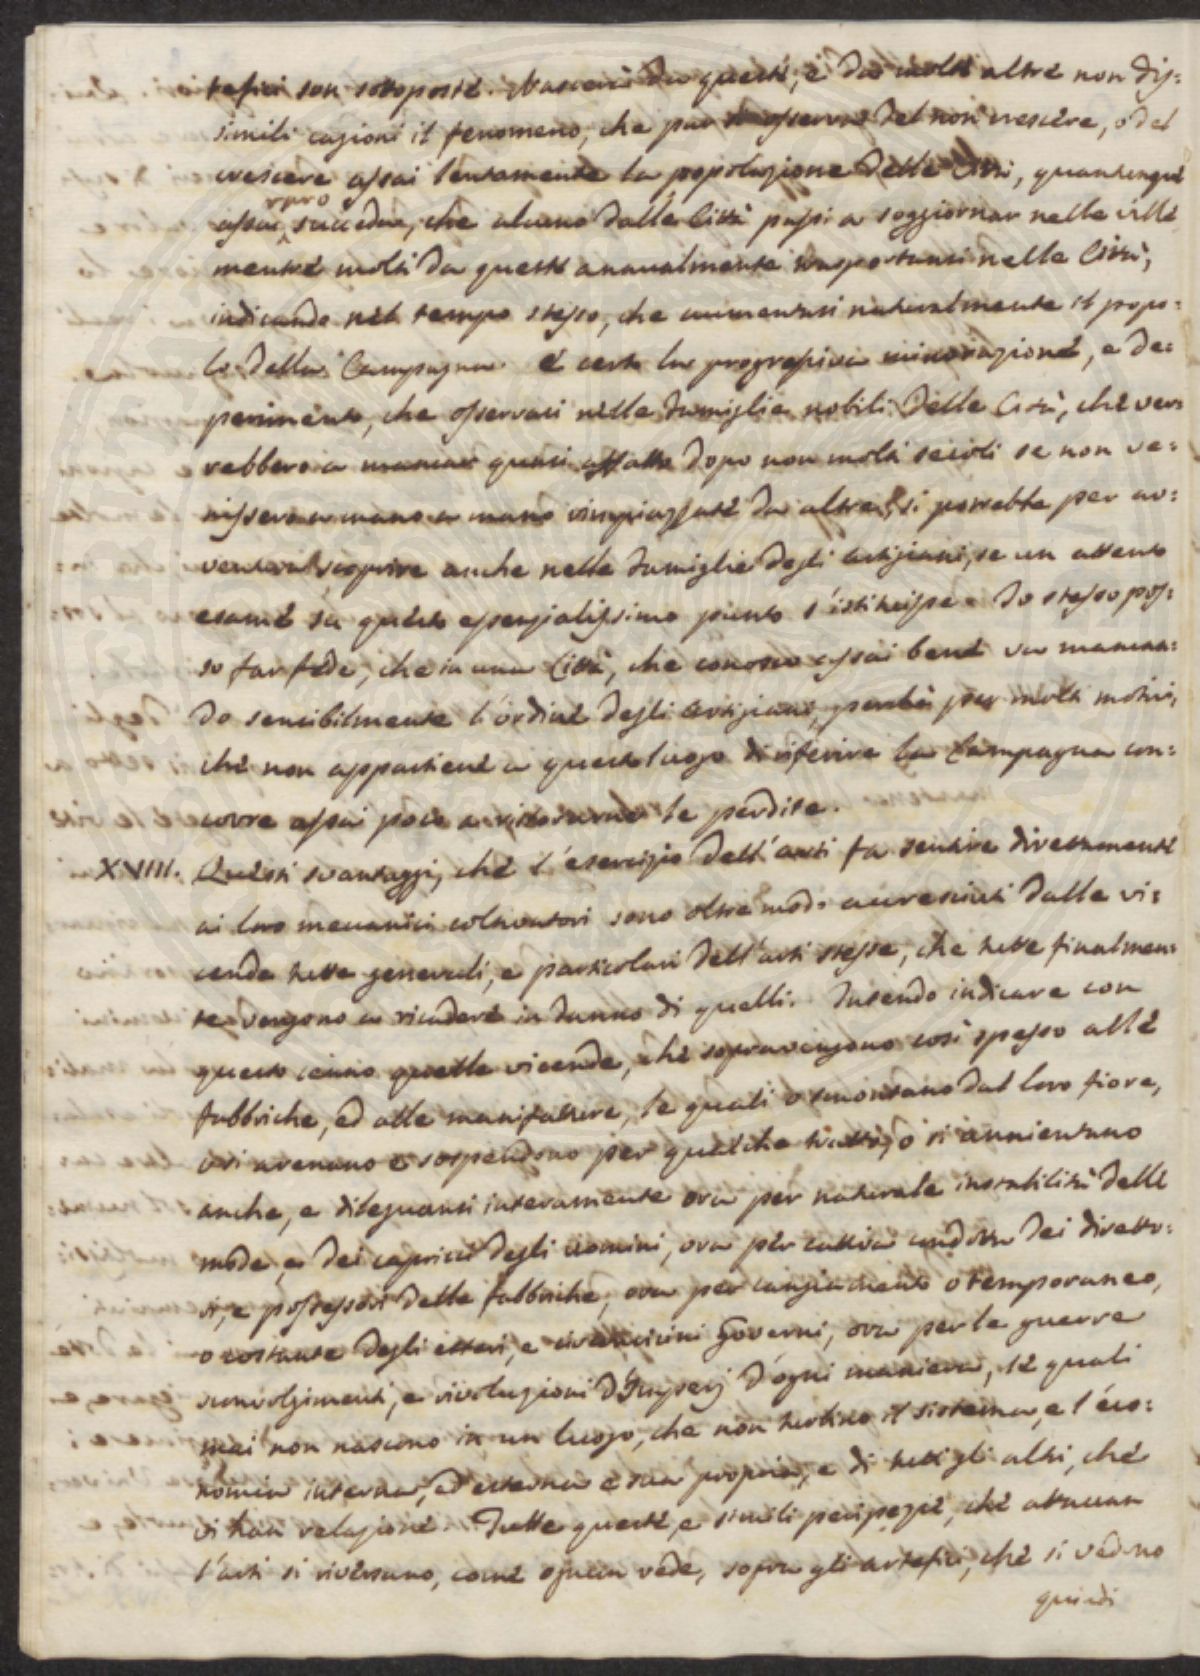 tefici son sottoposti. Nascerà da questi, e da molti altre non dis=
simili cagioni il fenomeno, che pur si osserva del non crescere, o del
crescere assai lentamente la popolazione delle Città, quantunque
assai raro succeda, che alcuno dalle Città passi a soggiornar nelle ville
mentre molti da queste annualmente trasportansi nelle Città,
indicando nel tempo stesso, che aumentasi naturalmente il popo=
lo della Campagna. E certo la progressiva minorazione, e de=
perimento, che osservasi nelle famiglie nobili delle Città, che ver=
rebbero a mancar quasi affatto dopo non molti secoli se non ve=
nissero a mano a mano rimpiazzate da altre, si potrebbe per av=
ventura scoprire anche nelle famiglie degli artigiani, se un attento
esame su questo essenzialissimo punto s'istituisse. Io stesso pos=
so far fede, che in una Città, che conosco assai bene va mancan=
do sensibilmente l'ordine degli artigiani, perchè per molti motivi,
che non appartiene a questo luogo di riferire la Campagna con=
corre assai poco a ristorarne le perdite.
XVIII. Questi svantaggi, che l'esercizio dell'arti fa sentire direttamente
ai loro meccanici coltivatori sono oltre modo accresciuti dalle vi=
cende tutte generali, e particolari dell'arti stesse, che tutte finalmen=
te vengono a ricadere in danno di quelli. Intendo indicare con
questo cenno quelle vicende, che sopravvengono così spesso alle
fabbriche, ed alle manifatture, le quali o smontano dal loro fiore,
o si arenano e sospendono per qualche tratto, o si annientano
anche, e dileguansi interamente ora per naturale instabilità delle
mode, e dei capricci degli uomini, ora per cattiva condotta dei diretto=
ri, e possessori delle fabbriche, ora per cangiamento o temporaneo,
o costante degli esteri, e circonvicini Governi, ora per le guerre
sconvolgimenti, e rivoluzioni d'Imperj d'ogni maniera, le quali
mai non nascono in un luogo, che non turbino il sistema, e l'eco=
nomia interna, ed esterna e sua propria, e di tutti gli altri, che
vi han relazione. Tutte queste, e simili peripezie, che attaccan
l'arti si riversano, come ognun vede, sopra gli artefici, che si vedono
quindi